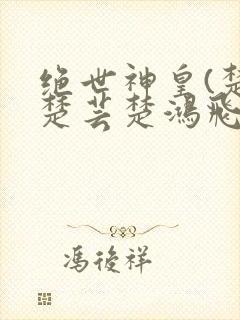 绝世神皇(楚
楚芸楚鸿飛
馮後祥